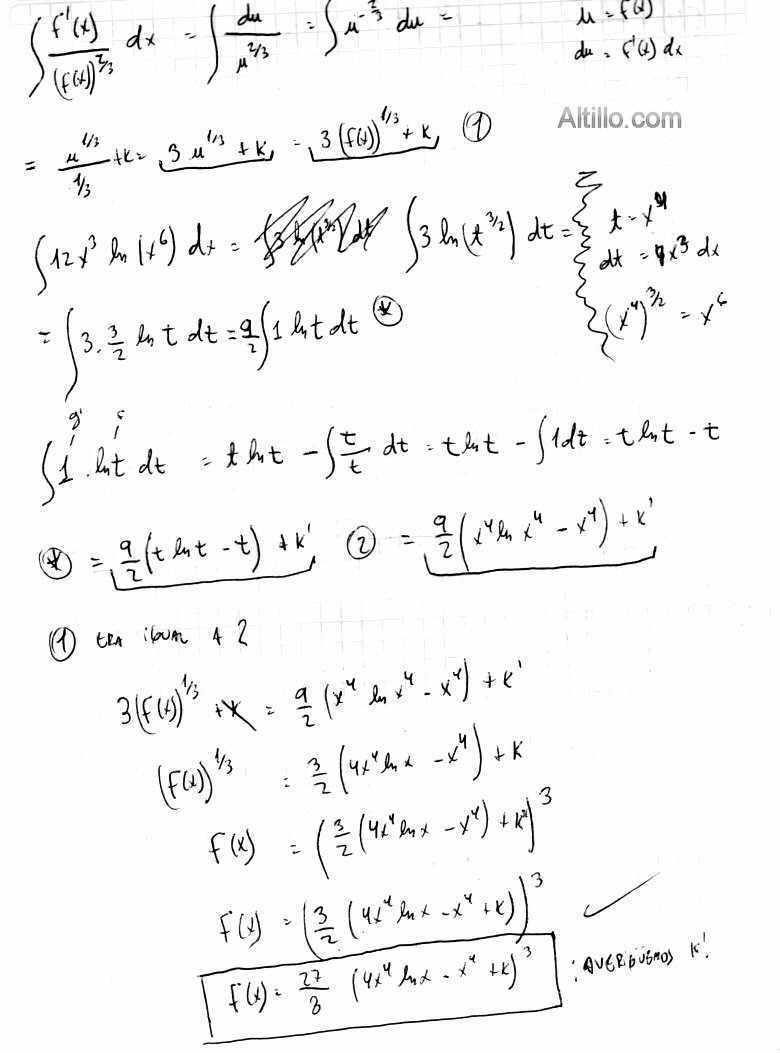 ∫ f'(x)/(f(x))^{2/3} dx = ∫ du/u^{2/3} = ∫ u^{-2/3} du =
u = f(x)
du = f'(x) dx
Altillo.com
= u^{1/3}/(1/3) + k = 3 u^{1/3} + k = 3 (f(x))^{1/3} + k ①
∫ 12x^3 ln(x^6) dx = ∫ 3 ln(t^{3/2}) dt =
t = x^4
dt = 4x^3 dx
(x^4)^{3/2} = x^6
= ∫ 3 · 3/2 ln t dt = 9/2 ∫ 1 ln t dt ⊛
g' f
∫ 1 · ln t dt = t ln t - ∫ t/t dt = t ln t - ∫ 1 dt = t ln t - t
⊛ = 9/2 (t ln t - t) + k' ② = 9/2 (x^4 ln x^4 - x^4) + k'
① ERA IGUAL A 2
3(f(x))^{1/3} + k = 9/2 (x^4 ln x^4 - x^4) + k'
(f(x))^{1/3} = 3/2 (4x^4 ln x - x^4) + k
f(x) = (3/2 (4x^4 ln x - x^4) + k)^3
f(x) = (3/2 (4x^4 ln x - x^4 + k))^3 ✓
f(x) = 27/8 (4x^4 ln x - x^4 + k)^3 ¡AVERIGÜEMOS K!